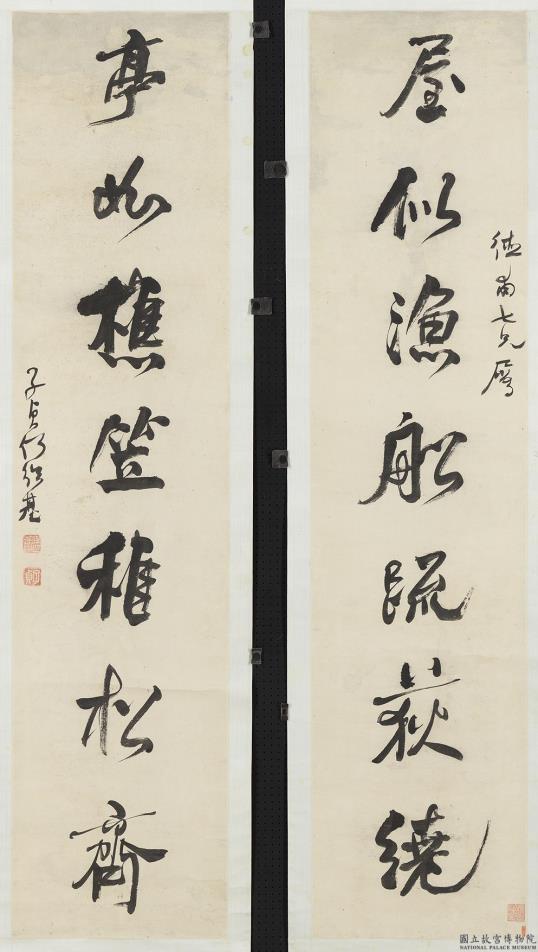 德甫七兄屬
屋似漁船疏荻繞
亭如樵笠稚松齊
子貞何紹基
國立故宮博物院
NATIONAL PALACE MUSEUM